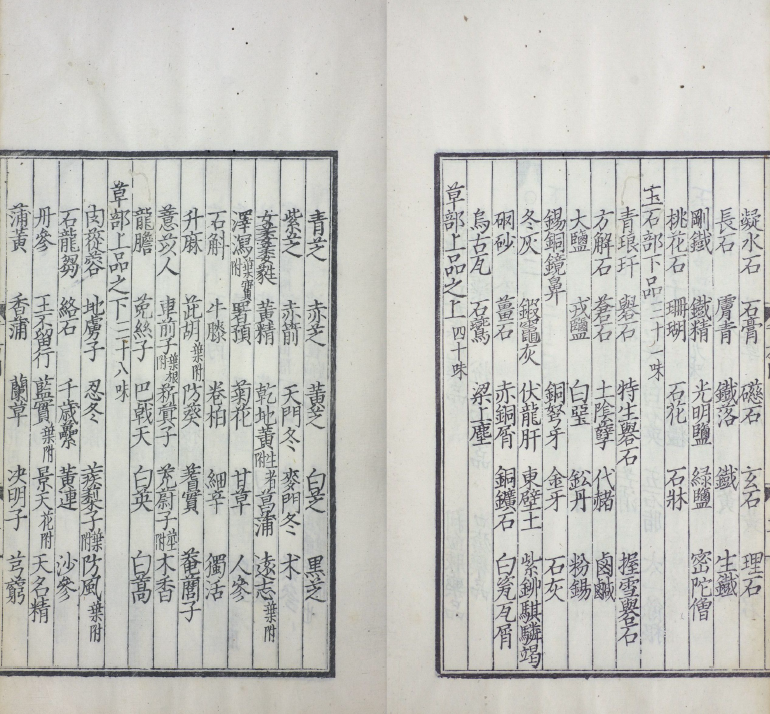 凝水石 石膏 磁石 玄石 理石
長石 膚青 鐵落 鐵 生鐵
剛鐵 鐵精 光明鹽 綠鹽 密陀僧
桃花石 珊瑚 石花 石牀
玉石部下品 三十一味
青琅玕 礜石 特生礜石 握雪礜石
方解石 蒼石 土陰孽 代赭 鹵鹹
大鹽 戎鹽 白堊 鈆丹 粉錫
錫銅鏡鼻 銅弩牙 金牙 石灰
冬灰 鍛竈灰 伏龍肝 東壁土 紫鉚騏驎竭
硇砂 薑石 赤銅屑 銅鑛石 白瓷瓦屑
烏古瓦 石鷰 梁上塵
草部上品之上 四十味
青芝 赤芝 黃芝 白芝 黑芝
紫芝 赤箭 天門冬 麥門冬 术
女萎萎蕤 黃精 乾地黃生者附 菖蒲 遠志葉附
澤瀉葉實附 署預 菊花 甘草 人參
石斛 牛膝 卷柏 細辛 獨活
升麻 茈胡葉附 防葵 蓍實 菴䕡子
薏苡人 車前子葉根附 菥蓂子 茺蔚子莖附 木香
龍膽 菟絲子 巴戟天 白英 白蒿
草部上品之下 三十八味
肉蓯容 地膚子 忍冬 蒺梨子葉附 防風葉附
石龍芻 絡石 千歲虆 黃連 沙參
丹參 王不留行 藍實葉附 景天花附 天名精
蒲黃 香蒲 蘭草 决明子 芎藭